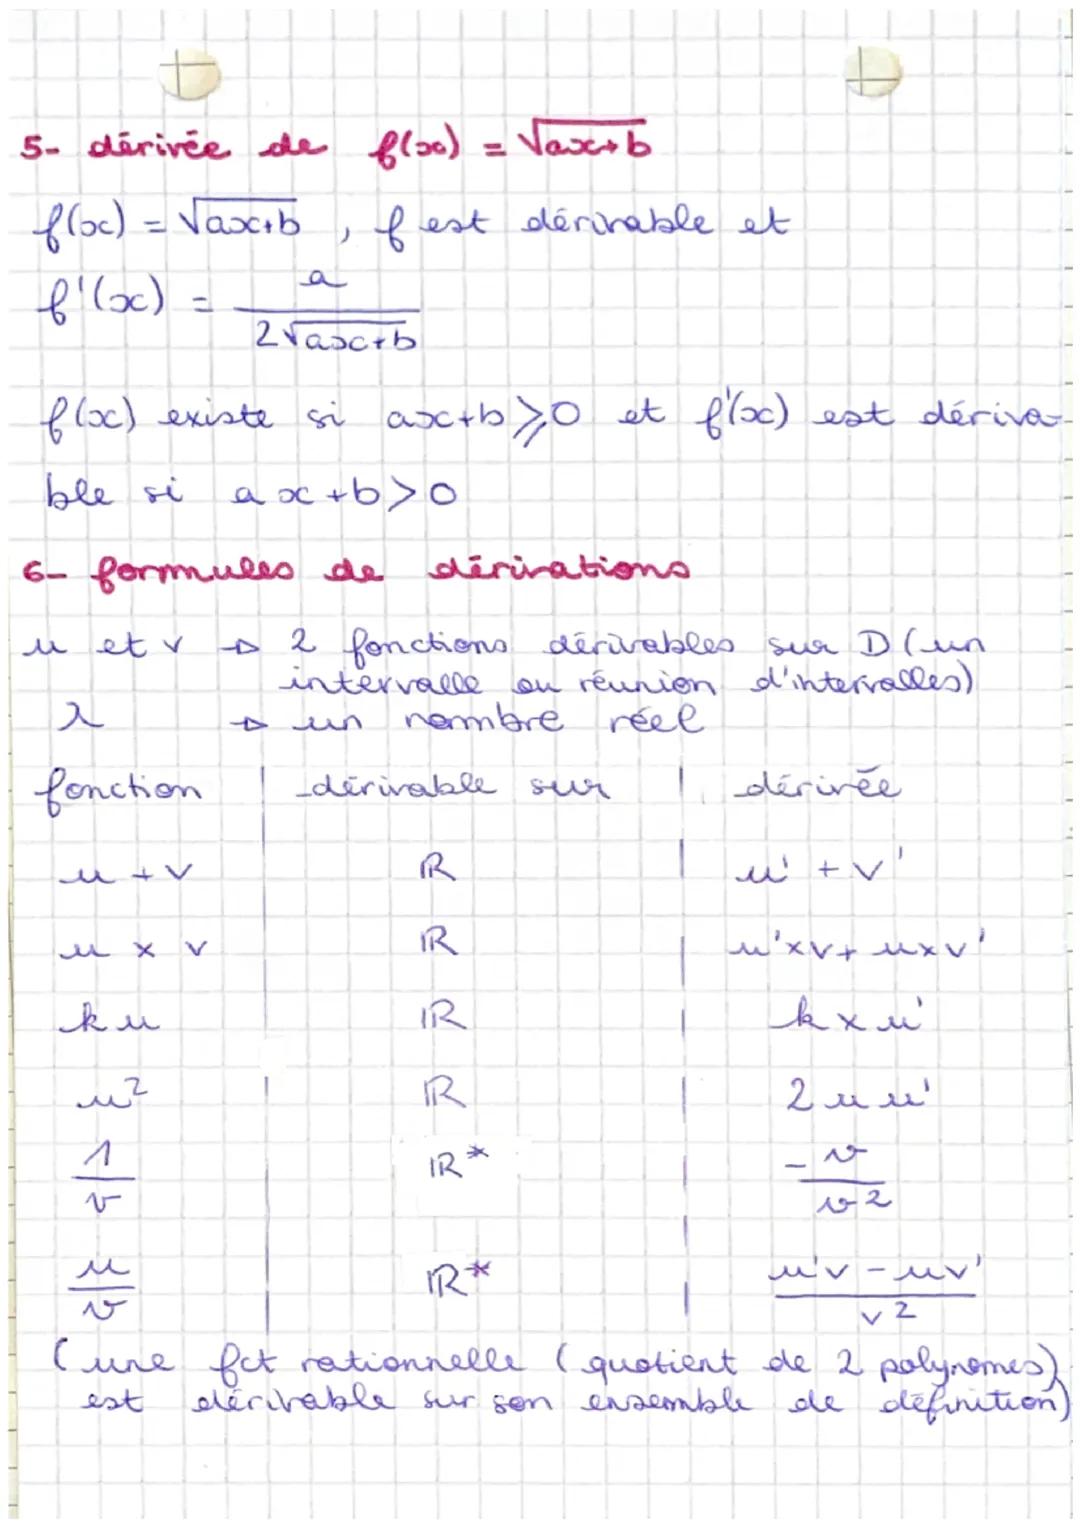 5- dérivée de f(x) = √ax+b
f(x) = √ax+b , f est dérivable et
f'(x) = a / 2√ax+b
f(x) existe si ax+b ⩾ 0 et f'(x) est dériva-
ble si ax+b > 0
6- formules de dérivations
u et v → 2 fonctions dérivables sur D (un
intervalle ou réunion d'intervalles)
λ → un nombre réel
fonction | dérivable sur | dérivée
u + v | ℝ | u' + v'
u × v | ℝ | u'×v + u×v'
k u | ℝ | k × u'
u² | ℝ | 2 u u'
1/v | ℝ* | -v/v²
u/v | ℝ* | (u'v - uv')/v²
(une fct rationnelle (quotient de 2 polynomes)
est dérivable sur son ensemble de définition)